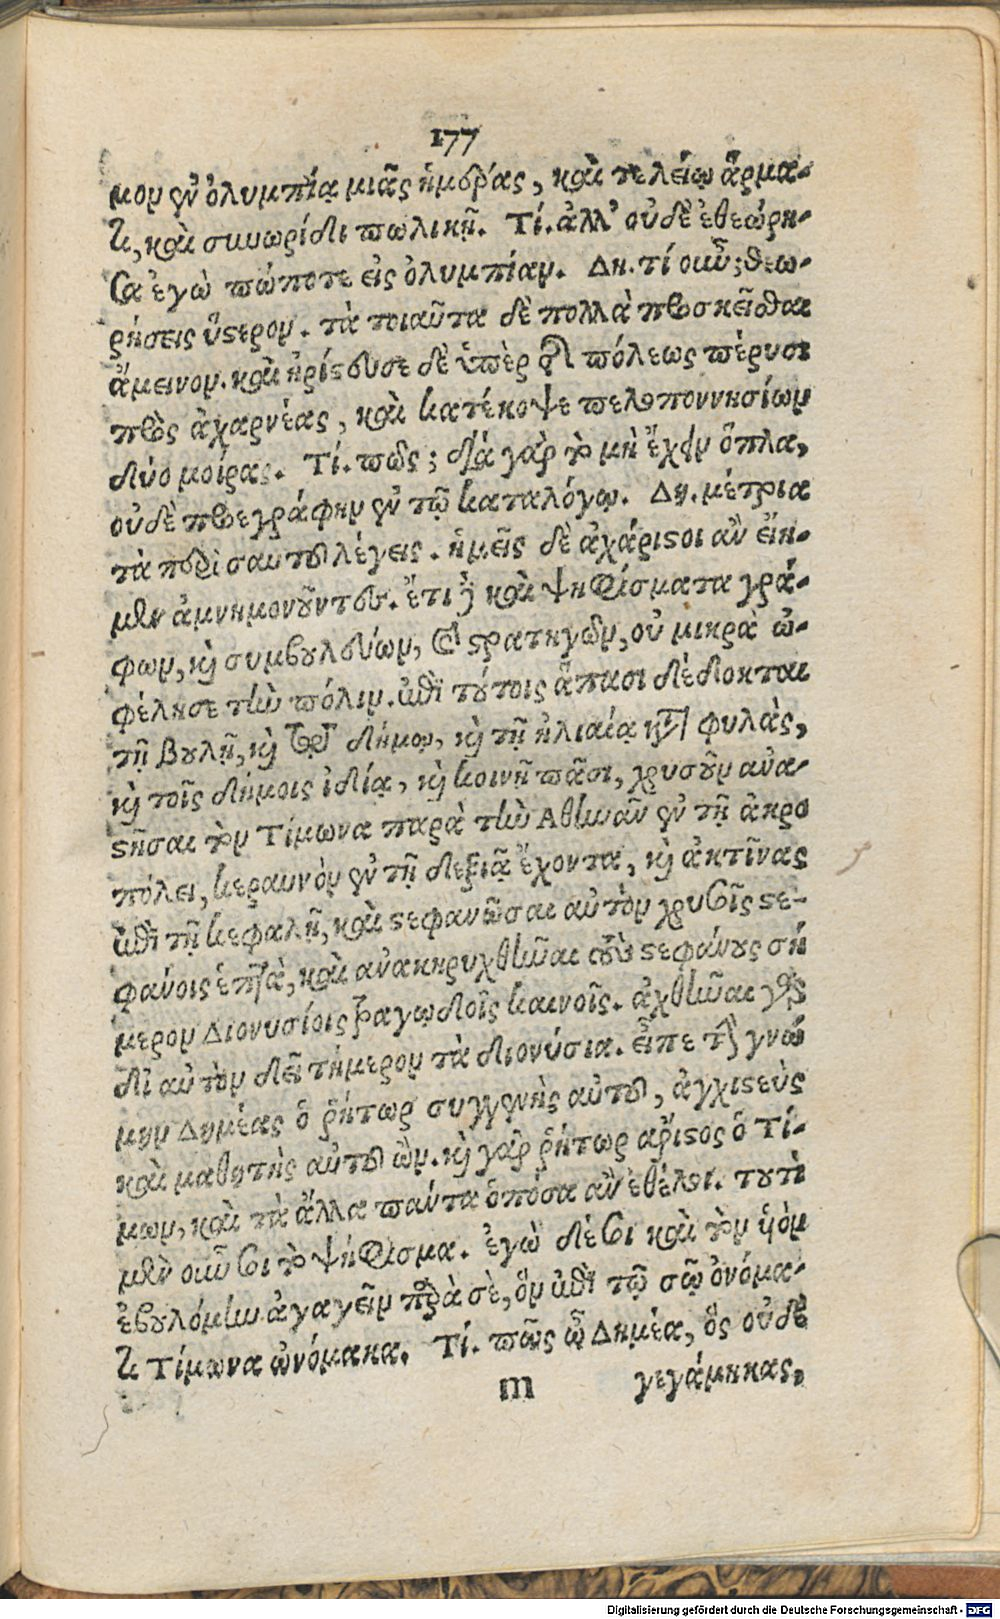 177
μου ἐν ὀλυμπίᾳ μιᾶς ἡμέρας, καὶ τελείῳ ἅρμα-
τι, καὶ συνωρίδι πωλικῇ. Τί. ἀλλ' οὐδὲ ἐθεώρη-
σα ἐγὼ πώποτε εἰς ὀλυμπίαν. Δη. τί οὖν; θεω-
ρήσεις ὕστερον. τὰ τοιαῦτα δὲ πολλὰ προσκεῖσθαι
ἄμεινον. καὶ ἠρίστευσε δὲ ὑπὲρ τῆς πόλεως πέρυσι
πρὸς ἀχαρνέας, καὶ κατέκοψε πελοποννησίων
δύο μοίρας. Τί. πῶς; διὰ γὰρ τὸ μὴ ἔχειν ὅπλα,
οὐδὲ προεγράφην ἐν τῷ καταλόγῳ. Δη. μέτρια
τὰ περὶ σαυτοῦ λέγεις. ἡμεῖς δὲ ἀχάριστοι ἂν εἴη-
μεν ἀμνημονοῦντες. ἔτι δὲ καὶ ψηφίσματα γρά-
φων, καὶ συμβουλεύων, καὶ στρατηγῶν, οὐ μικρὰ ὠ-
φέλησε τὴν πόλιν. ἐπὶ τούτοις ἅπασι δέδοκται
τῇ βουλῇ, καὶ τῷ δήμῳ, καὶ τῇ ἡλιαίᾳ κατὰ φυλὰς,
καὶ τοῖς δήμοις ἰδίᾳ, καὶ κοινῇ πᾶσι, χρυσοῦν ἀνα-
στῆσαι τὸν Τίμωνα παρὰ τὴν Ἀθηνᾶν ἐν τῇ ἀκρο
πόλει, κεραυνὸν ἐν τῇ δεξιᾷ ἔχοντα, καὶ ἀκτῖνας
ἐπὶ τῇ κεφαλῇ, καὶ στεφανῶσαι αὐτὸν χρυσοῖς στε-
φάνοις ἑπτὰ, καὶ ἀνακηρυχθῆναι τοὺς στεφάνους σή
μερον Διονυσίοις τραγῳδοῖς καινοῖς. ἀχθῆναι γὰρ
δι' αὐτὸν δεῖ τήμερον τὰ διονύσια. εἶπε τὴν γνώ
μην Δημέας ὁ ῥήτωρ συγγενὴς αὐτοῦ, ἀγχιστεὺς
καὶ μαθητὴς αὐτοῦ ὢν. καὶ γὰρ ῥήτωρ ἄριστος ὁ Τί-
μων, καὶ τὰ ἄλλα πάντα ὁπόσα ἂν ἐθέλοι. τουτὶ
μὲν οὖν σοι τὸ ψήφισμα. ἐγὼ δέ σοι καὶ τὸν υἱὸν
ἐβουλόμην ἀγαγεῖν παρὰ σὲ, ὃν ἐπὶ τῷ σῷ ὀνόμα-
τι Τίμωνα ὠνόμακα. Τί. πῶς ὦ Δημέα, ὃς οὐδὲ
m γεγάμηκας,
Digitalisierung gefördert durch die Deutsche Forschungsgemeinschaft - DFG